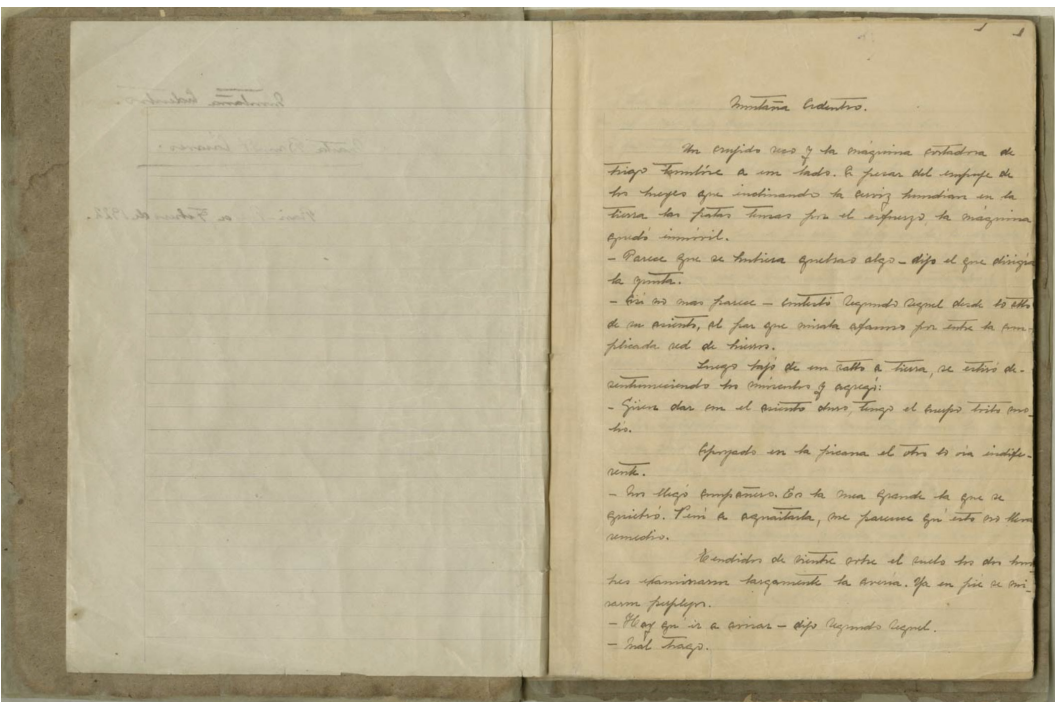 1 1
Montaña Adentro.
Un crujido seco y la máquina cortadora de
trigo tumbóse a un lado. A pesar del empuje de
los bueyes que inclinando la cerviz hundían en la
tierra las patas tensas por el esfuerzo la máquina
quedó inmóvil.
– Parece que se hubiera quebrao algo – dijo el que dirigía
la yunta.
– Así no mas parece – contestó Segundo Seguel desde lo alto
de su asiento, al par que miraba afanoso por entre la com-
plicada red de hierros.
Luego bajó de un salto a tierra, se estiró de-
sentumeciendo los músculos y agregó:
– Güen dar con el asiento duro, tengo el cuerpo toito mo-
lío.
Apoyado en la picana el otro lo oía indife-
rente.
– Nos llegó compañero. Es la rueda grande la que se
quebró. Vení a aguaitarla, me parece qu'esto no tiene
remedio.
Tendidos de vientre sobre el suelo los dos hom-
bres examinaron largamente la avería. Ya en pie se mi-
raron perplejos.
– Hay qu'ir a avisar – dijo Segundo Seguel.
– Mal trago.